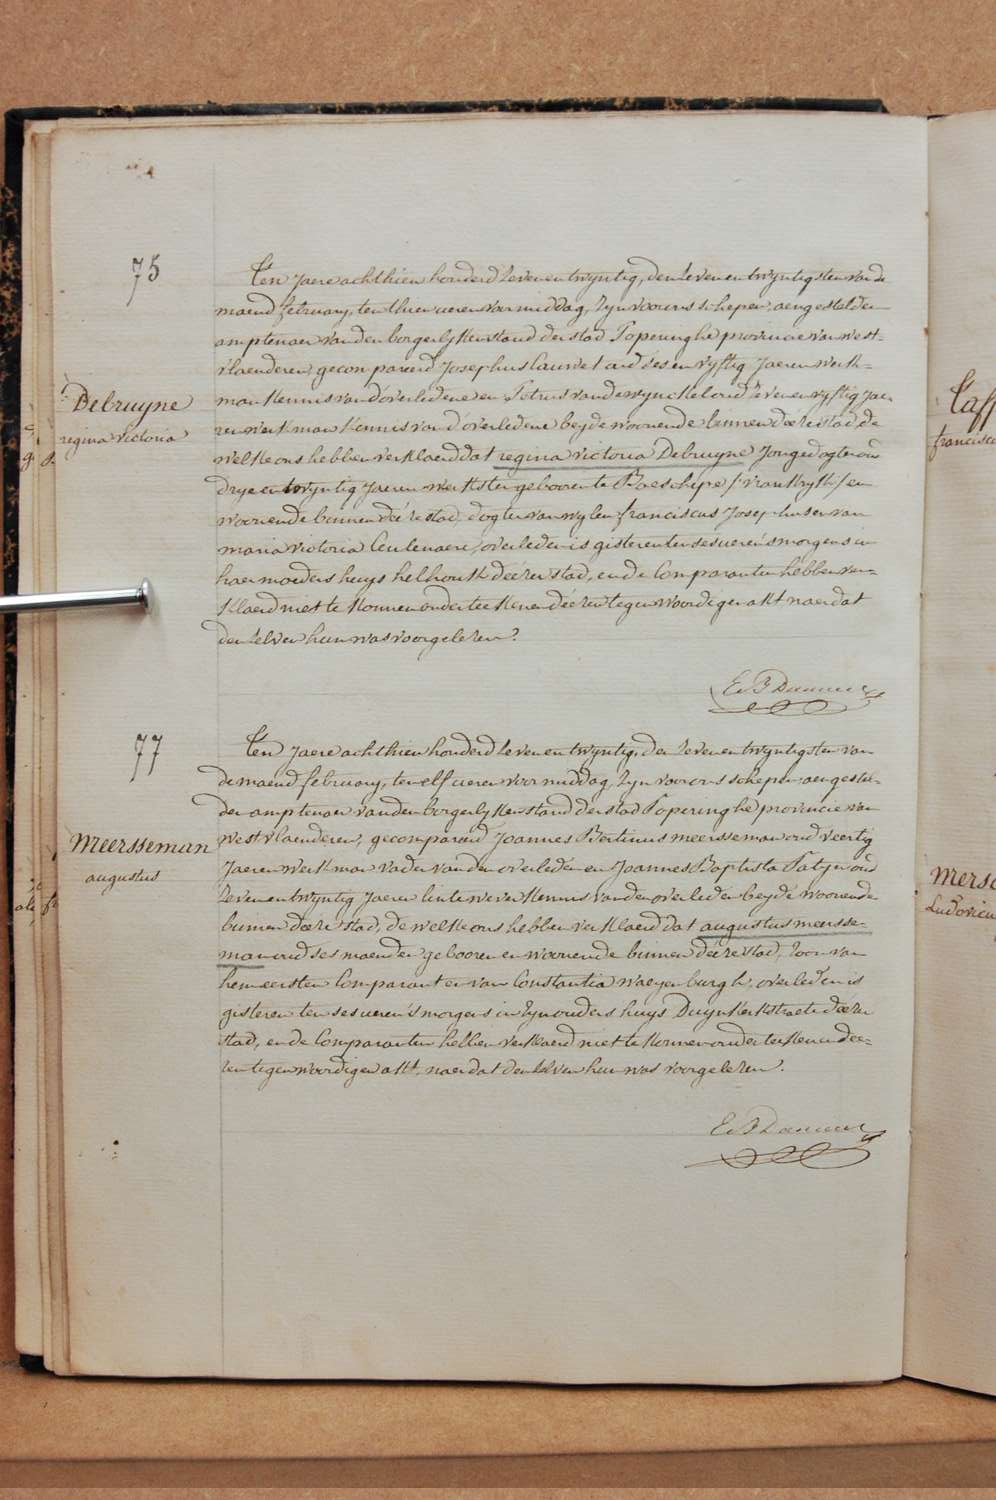 75
Debruyne
regina victoria
Ten jaere achthien honderd zeven en twyntig, den zeven en twyntigsten van de
maend february, ten thien ueren voormiddag, zyn voor ons schepen, aengestelden
amptenaer van den borgerlyken stand der stad Poperinghe provincie van west-
vlaenderen, gecompareerd Josephus Lauwet oud ses en vyftig Jaeren werk-
man kennis van d'overledene en Petrus vandewynckel oud zeven en vyftig jae-
ren werkman kennis van d'overledene beyde woonende binnen deéze stad, de
welke ons hebben verklaerd dat regina victoria Debruyne Jonge dogter oud
drye en twyntig Jaeren werkster geboren te Boeschepe /vrankryk/ en
woonende binnen deéze stad, dogter van wylen franciscus Josephus en van
maria victoria Ceulenaere, overleden is gisteren ten ses ueren 's morgens in
haer moeders huys helhouk deézer stad, en de Comparanten hebben ver-
klaerd niet te konnen onderteekenen deézen tegenwoordigen akt naer dat
den zelven hun was voorgelezen.
77
Meersseman
augustus
Ten Jaere achthien honderd zeven en twyntig, den zeven en twyntigsten van
de maend february, ten elf ueren voormiddag, zyn voor ons schepen, aengestel-
den amptenaer van den borgerlyken stand der stad Poperinghe provincie van
westvlaenderen, gecompareerd Joannes Bertinus meersseman oud veertig
Jaeren werkman vader van den overleden en Joannes Baptista Patyn oud
zeven en twyntig Jaeren lintewever kennis van den overleden beyde woonende
binnen deéze stad, de welke ons hebben verklaerd dat augustus meersse-
man oud ses maenden geboren en woonende binnen deéze stad, zoon van
hem eersten Comparant en van Constantia waeyenburgh, overleden is
gisteren ten ses ueren 's morgens in zyn ouders huys Duynkerkstraete deézer
stad, en de Comparanten hebben verklaerd niet te konnen onderteekenen deé-
zen tegenwoordigen akt, naer dat den zelven hun was voorgelezen.
francisc
Mers
Ludovicu